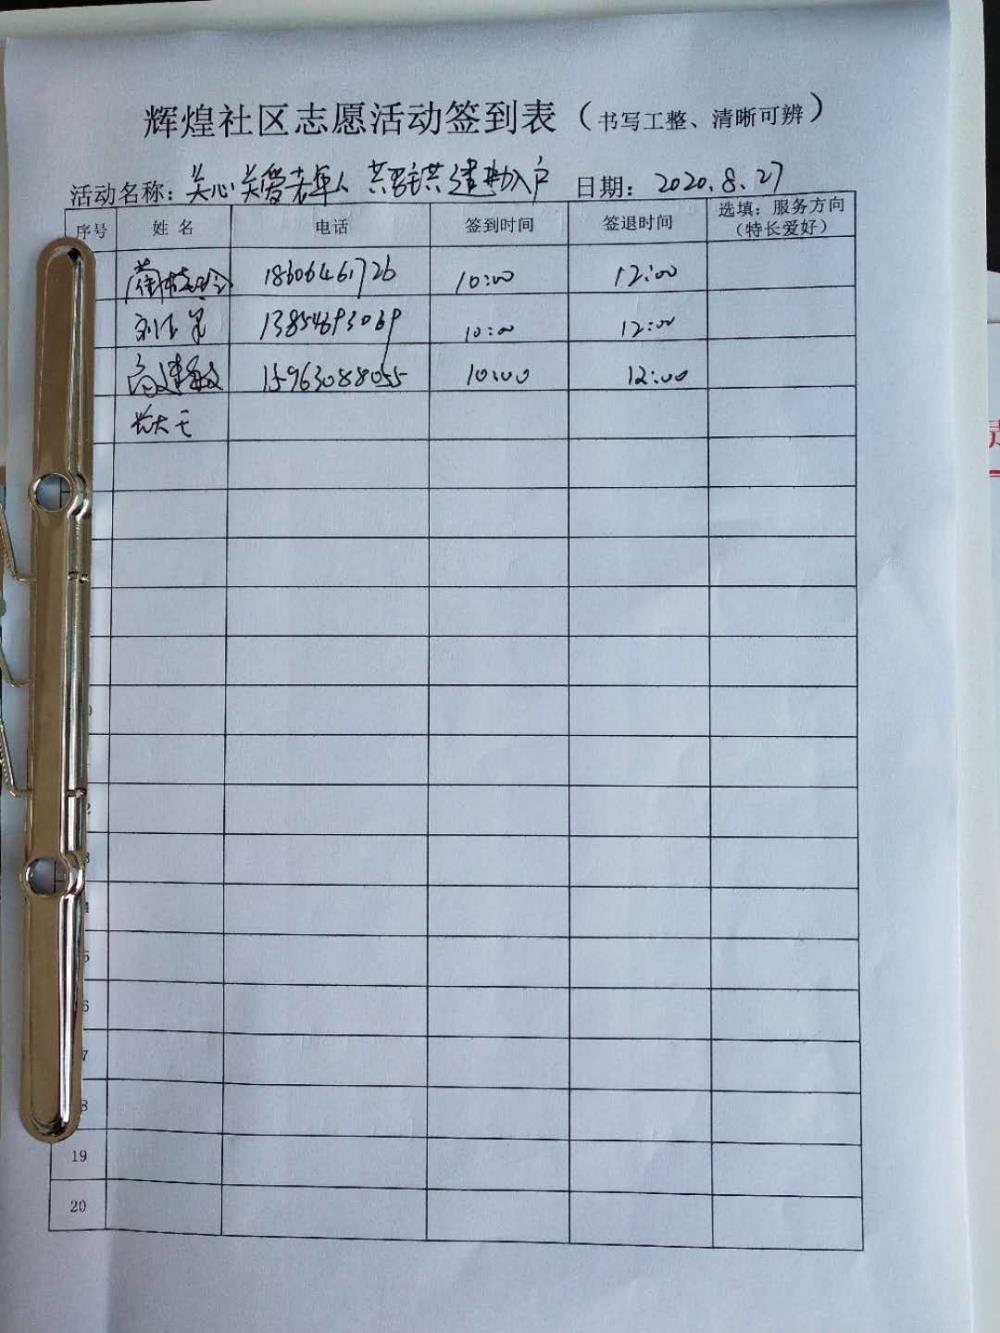 辉煌社区志愿活动签到表（书写工整、清晰可辨）
活动名称：关心关爱老军人 共 建 入户 日期：2020.8.27
序号 姓名 电话 签到时间 签退时间 选填：服务方向（特长爱好）
18606461726 10:00 12:00
13854693069 10:00 12:00
高建敏 15963088055 10:00 12:00
19
20